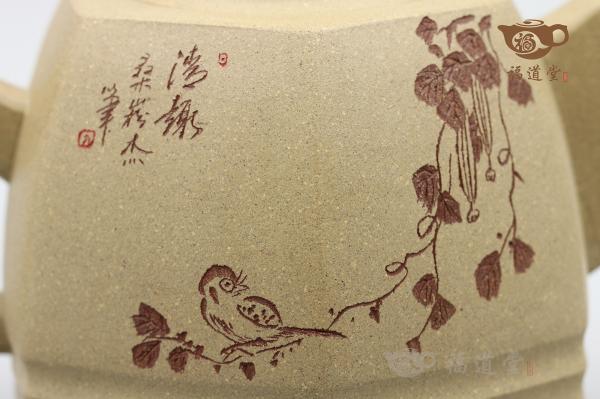 清趣
桑崧杰
笔
福道堂
福道堂